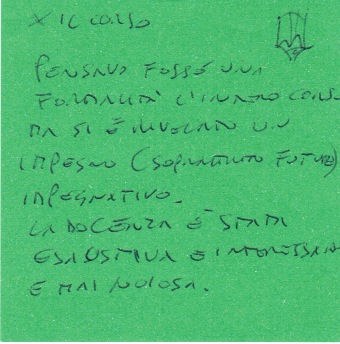 X IL CORSO
PENSAVO FOSSE UNA
FORMALITÀ L'INTERO CORSO
MA SI È RIVELATO UN
IMPEGNO (SOPRATTUTTO FUTURO)
IMPEGNATIVO.
LA DOCENZA È STATA
ESAUSTIVA E INTERESSANTE
E MAI NOIOSA.